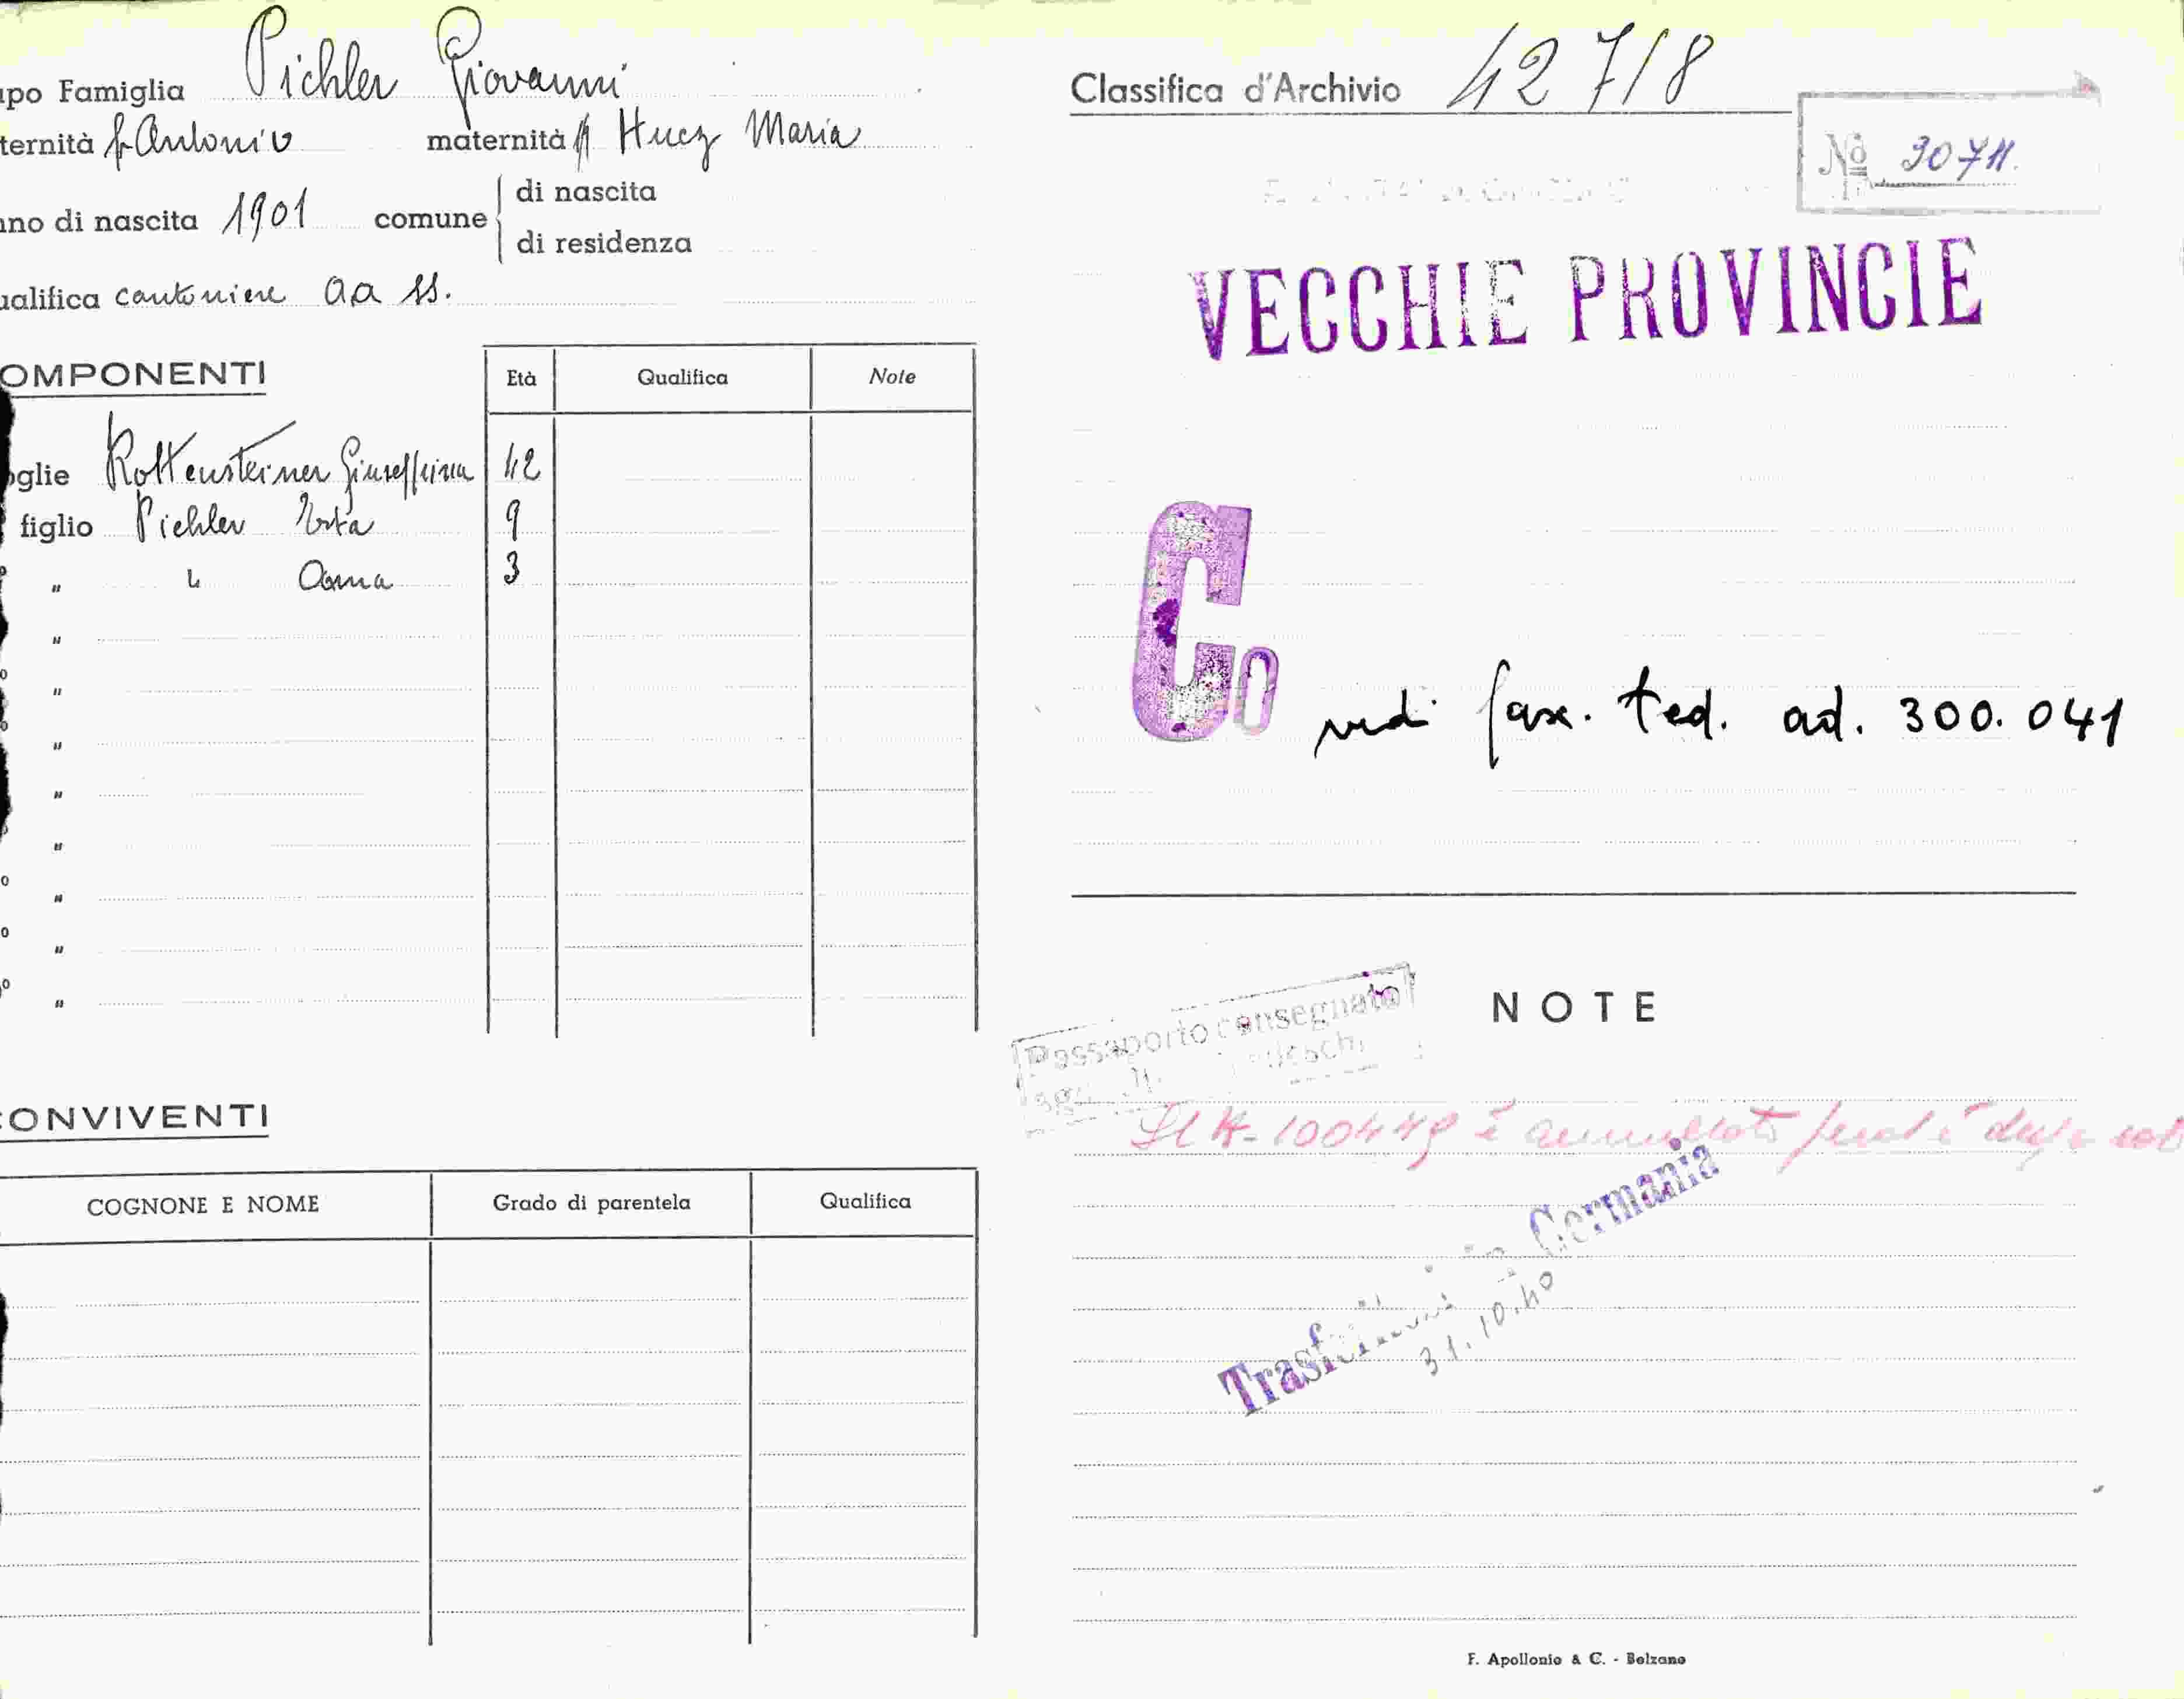 apo Famiglia Pichler Giovanni
ternità f. Antonio maternità Maria
nno di nascita 1901 comune
di nascita
di residenza
ualifica cantoniere aa ss.
OMPONENTI
Età Qualifica Note
oglie Rottensteiner Giuseppina 42
figlio Pichler 9
" " Anna 3
"
"
"
"
"
"
"
"
ONVIVENTI
COGNONE E NOME Grado di parentela Qualifica
Classifica d'Archivio 42718
No 30711.
VECCHIE PROVINCIE
Co
vedi fax. ted. ad. 300.041
NOTE
Passaporto consegnato
è annullato
Trasferitosi in Germania
31.10.40
F. Apollonio & C. - Bolzano